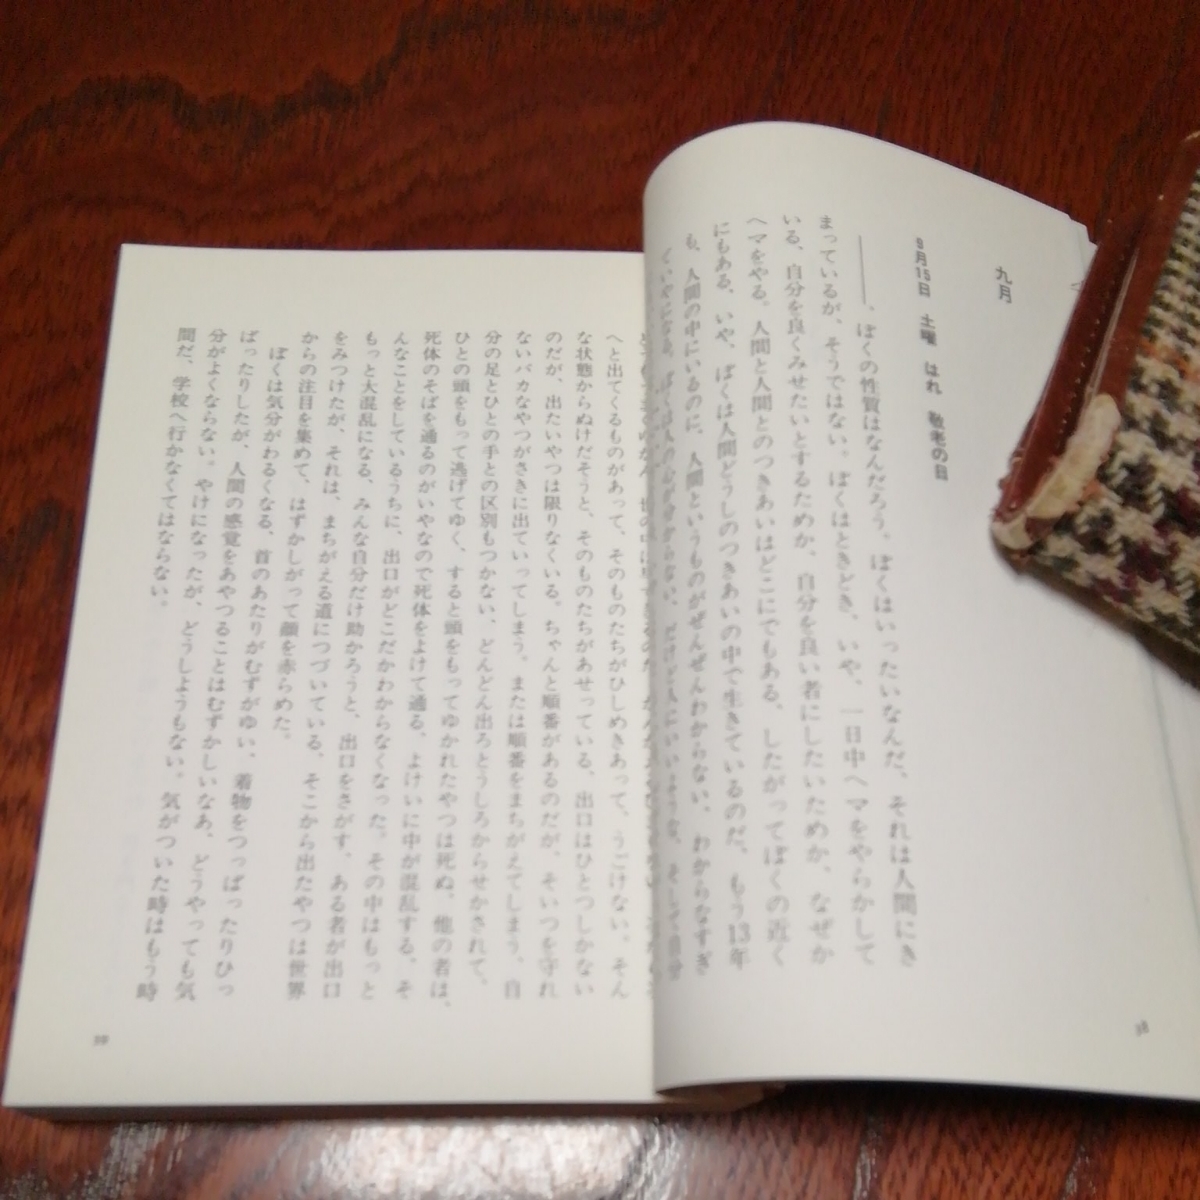 九月
9月15日 土曜 はれ 敬老の日
――、ぼくの性質はなんだろう。ぼくはいったいなんだ。それは人間にき
まっているが、そうではない。ぼくはときどき、いや、一日中ヘマをやらかして
いる、自分を良くみせたいとするためか、自分を良い者にしたいためか、なぜか
ヘマをやる。人間と人間とのつきあいはどこにでもある、したがってぼくの近く
にもある、いや、ぼくは人間どうしのつきあいの中で生きているのだ。もう13年
も、人間の中にいるのに、人間というものがぜんぜんわからない、わからなすぎ
ていやになる。ぼくは人の心が分からない、だけど人にいいような、そして自分
38
へと出てくるものがあって、そのものたちがひしめきあって、うごけない。そん
な状態からぬけだそうと、そのものたちがあせっている、出口はひとつしかない
のだが、出たいやつは限りなくいる。ちゃんと順番があるのだが、そいつを守れ
ないバカなやつがさきに出ていってしまう。または順番をまちがえてしまう、自
分の足とひとの手との区別もつかない、どんどん出ろとうしろからせかされて、
ひとの頭をもって逃げてゆく、すると頭をもってゆかれたやつは死ぬ、他の者は、
死体のそばを通るのがいやなので死体をよけて通る、よけいに中が混乱する、そ
んなことをしているうちに、出口がどこだかわからなくなった。その中はもっと
もっと大混乱になる、みんな自分だけ助かろうと、出口をさがす、ある者が出口
をみつけたが、それは、まちがえる道につづいている、そこから出たやつは世界
からの注目を集めて、はずかしがって顔を赤らめた。
ぼくは気分がわるくなる、首のあたりがむずがゆい、着物をつっぱったりひっ
ぱったりしたが、人間の感覚をあやつることはむずかしいなあ、どうやっても気
分がよくならない。やけになったが、どうしようもない。気がついた時はもう時
間だ、学校へ行かなくてはならない。